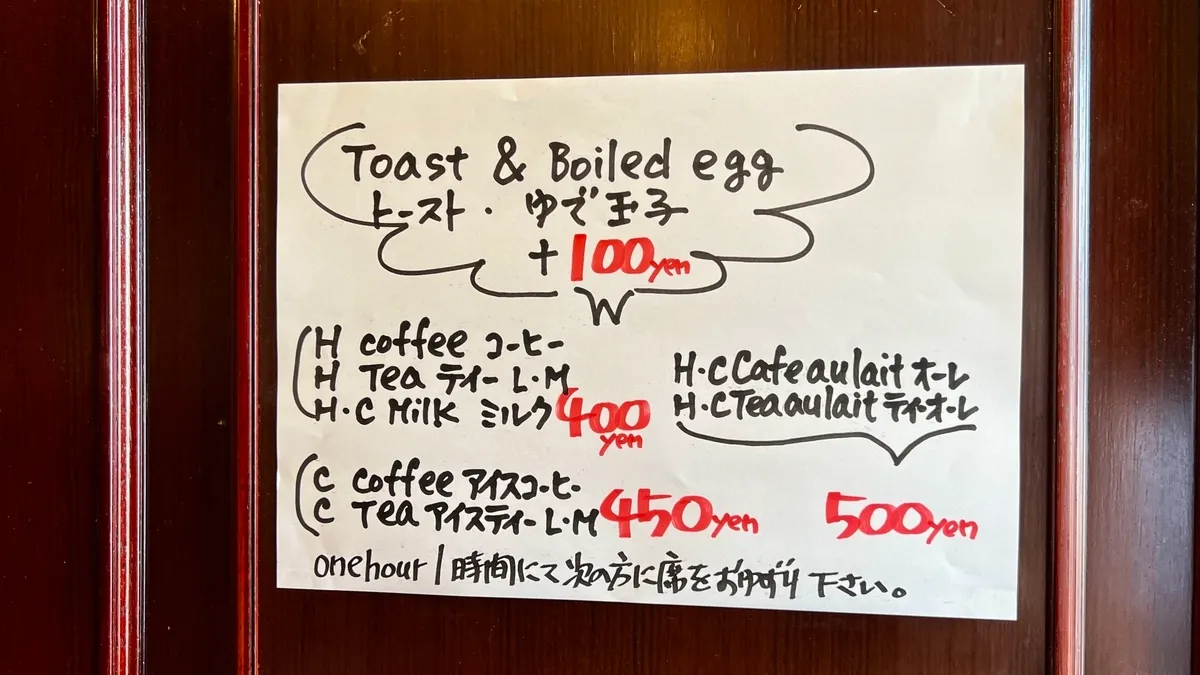 Toast & Boiled egg
トースト・ゆで玉子
+100yen
H coffee コーヒー
H Tea ティー L・M
H・C Milk ミルク 400
yen
H・C Cafe au lait オーレ
H・C Tea au lait ティオーレ
C coffee アイスコーヒー
C Tea アイスティー L・M 450yen
500yen
one hour 1時間にて次の方に席をおゆずり下さい。